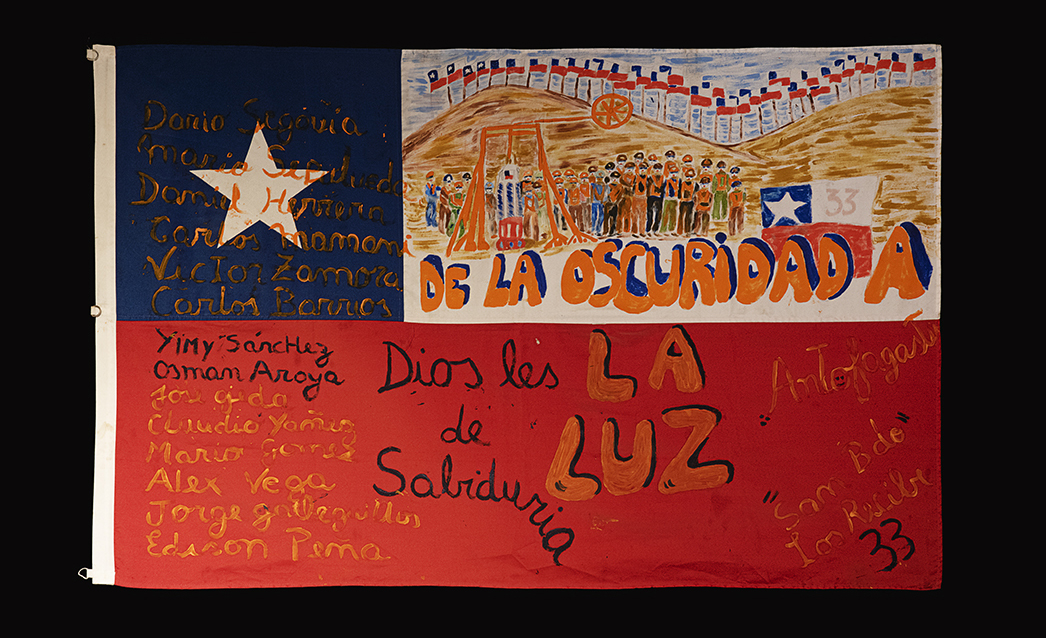 Dario Segovia
"mario Sepulveda
Daniel Herrera
"Carlos" mamani
Victor Zamora
Carlos Barrios
33
DE LA OSCURIDAD A
LA
LUZ
Yimy Sánchez
Osman Aroya
José ojeda
Claudio Yañez
Mario Gomez
Alex Vega
Jorge galleguillos
Edison Peña
Dios les
de
Sabiduria
Antofagasta
"San Bdo"
Los Recibe
33